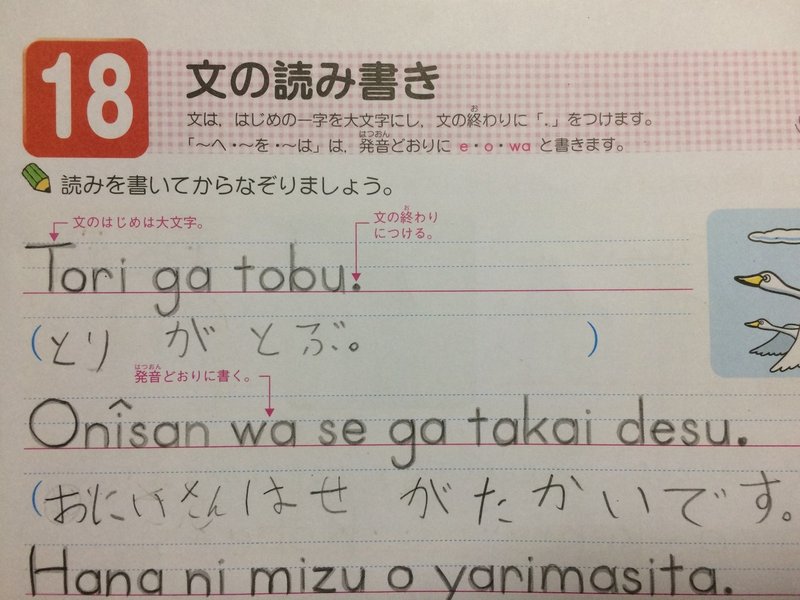 18
文の読み書き
文は，はじめの一字を大文字にし，文の終わりに「.」をつけます。
「〜へ・〜を・〜は」は，発音どおりに e・o・wa と書きます。
読みを書いてからなぞりましょう。
文のはじめは大文字。
文の終わりにつける。
Tori ga tobu.
(とり が とぶ。 )
発音どおりに書く。
Onîsan wa se ga takai desu.
(おにいさん は せ が たかい です。
Hana ni mizu o yarimasita.